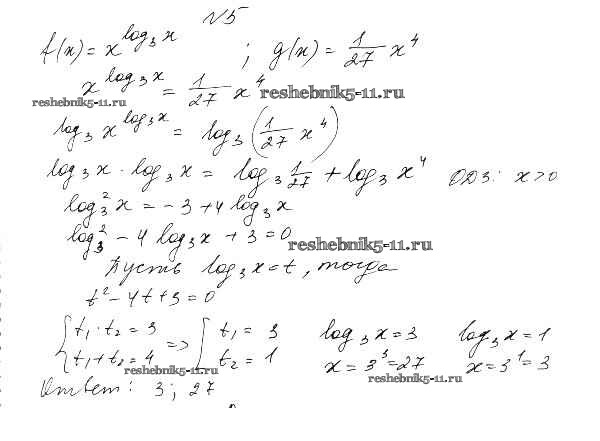 №5
f(x) = x^{log₃x} ; g(x) = 1/27 x⁴
x^{log₃x} = 1/27 x⁴
resheb​nik5-11.ru resheb​nik5-11.ru
log₃ x^{log₃x} = log₃(1/27 x⁴)
log₃x · log₃x = log₃ 1/27 + log₃ x⁴ ОДЗ: x>0
log₃²x = -3 + 4 log₃x
log₃² - 4 log₃x + 3 = 0
reshebnik5-11.ru
Пусть log₃x = t, тогда
t² - 4t + 3 = 0
{ t₁ · t₂ = 3 => [ t₁ = 3 log₃x = 3 log₃x = 1
t₁ + t₂ = 4 t₂ = 1 x = 3³ = 27 x = 3¹ = 3
reshebnik5-11.ru reshebnik5-11.ru
Ответ: 3; 27